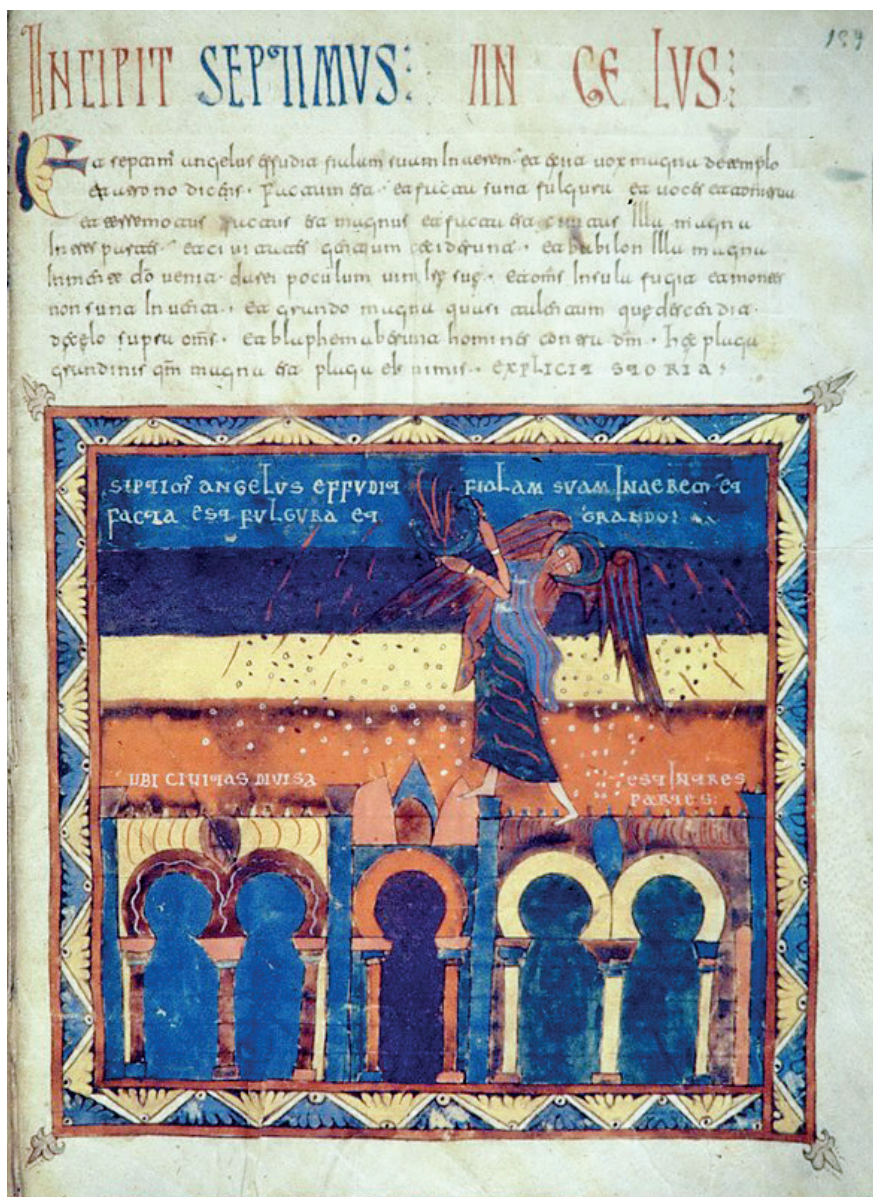 INCIPIT SEPTIMVS: ANGELVS:
Et septim angelus effudit fialam suam In aerem et exiit uox magna de templo
et a trono dicens. Factum est. et facta sunt fulgura et uoces et tonitrua
et terremotus factus est magnus et facta est ciuitas Illa magna
In tres partes. et ciuitates gentium ceciderunt. et babilon Illa magna
In mente do uenit. darei poculum uini ire suę. et omis Insula fugit et montes
non sunt Inuenti. et grando magna quasi talentum quę descendit
de cęlo supra oms. et blasphemaberunt homines contra dm. hęc plaga
grandinis qm magna est plaga eius nimis. EXPLICIT STORIA:
SEPTIM ANGELVS EFFVDIT FIALAM SVAM IN AEREM ET
FACTA EST FVLGVRA ET GRANDO:
UBI CIVITAS DIVISA EST IN TRES
PARTES: